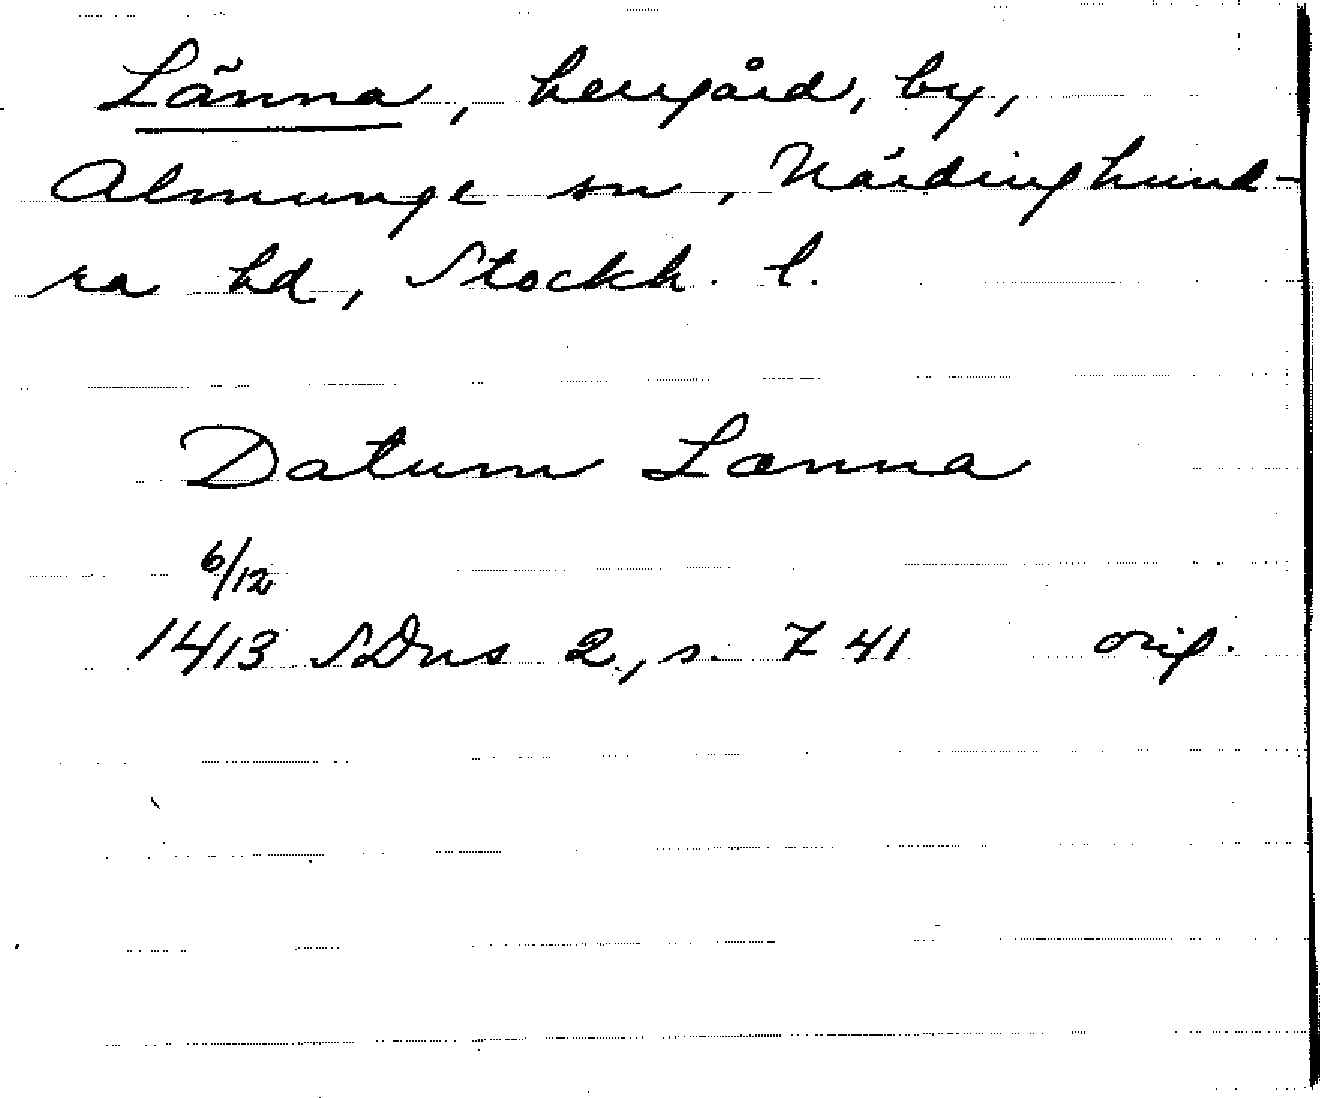 Länna, herrgård, by,
Almunge sn, Närdinghund-
ra hd, Stockh. l.
Datum Lænna
6/12
1413 SDns 2, s. 741 orig.